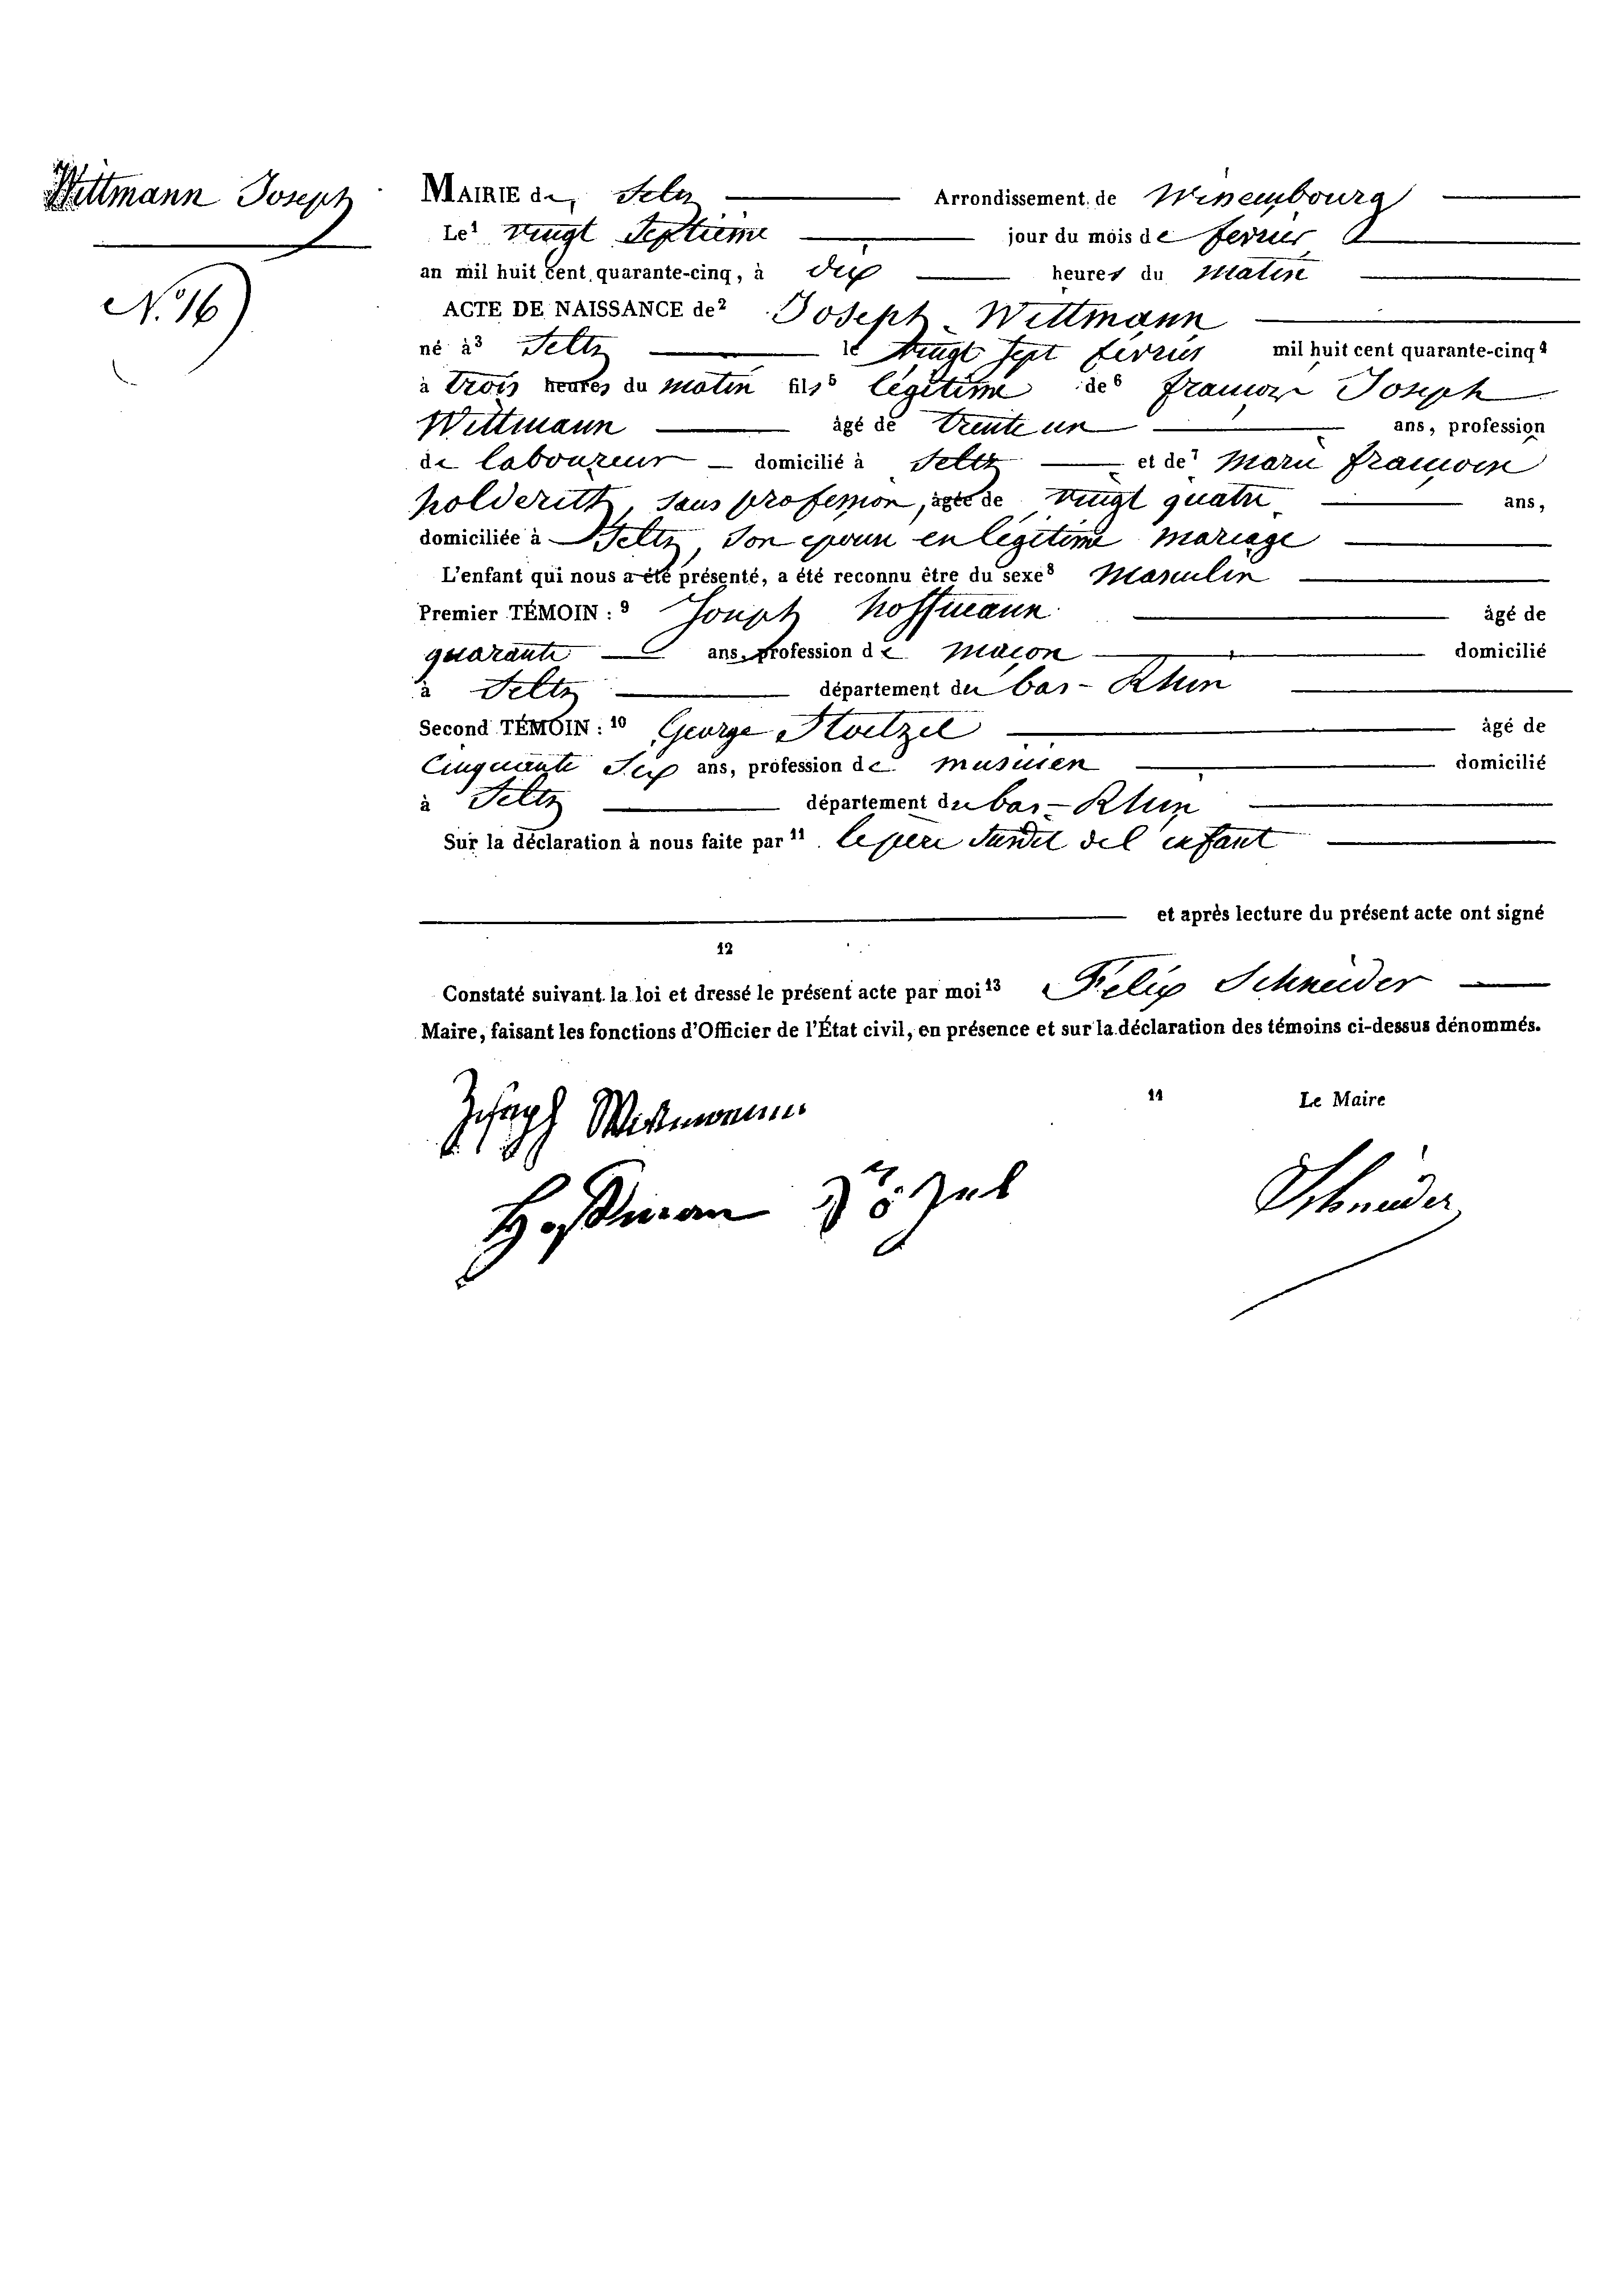 Wittmann Joseph
N.º 16
MAIRIE de Seltz Arrondissement de Wissembourg
Le¹ vingt Septième jour du mois de fevrier
an mil huit cent quarante-cinq, à dix heures du matin
ACTE DE NAISSANCE de² Joseph Wittmann
né à³ Seltz le vingt sept fevrier mil huit cent quarante-cinq⁴
à trois heures du matin fils⁵ légitime de⁶ francois Joseph
Wittmann âgé de trente un ans, profession
de laboureur domicilié à Seltz et de⁷ marie francoise
holderith, sans profession, âgée de vingt quatre ans,
domiciliée à Seltz, Son epouse en légitime mariage
L'enfant qui nous a été présenté, a été reconnu être du sexe⁸ Masculin
Premier TÉMOIN : ⁹ Joseph hoffmann âgé de
quarante ans, profession de maçon domicilié
à Seltz département du bas-Rhin
Second TÉMOIN : ¹⁰ George Stoetzel âgé de
Cinquante Six ans, profession de musicien domicilié
à Seltz département du bas-Rhin
Sur la déclaration à nous faite par¹¹ le père susdit de l'enfant
et après lecture du présent acte ont signé
12
Constaté suivant la loi et dressé le présent acte par moi¹³ Felix Schneider
Maire, faisant les fonctions d'Officier de l'État civil, en présence et sur la déclaration des témoins ci-dessus dénommés.
14 Le Maire
Joseph Wittmann
Hoffman Stözel Schneider